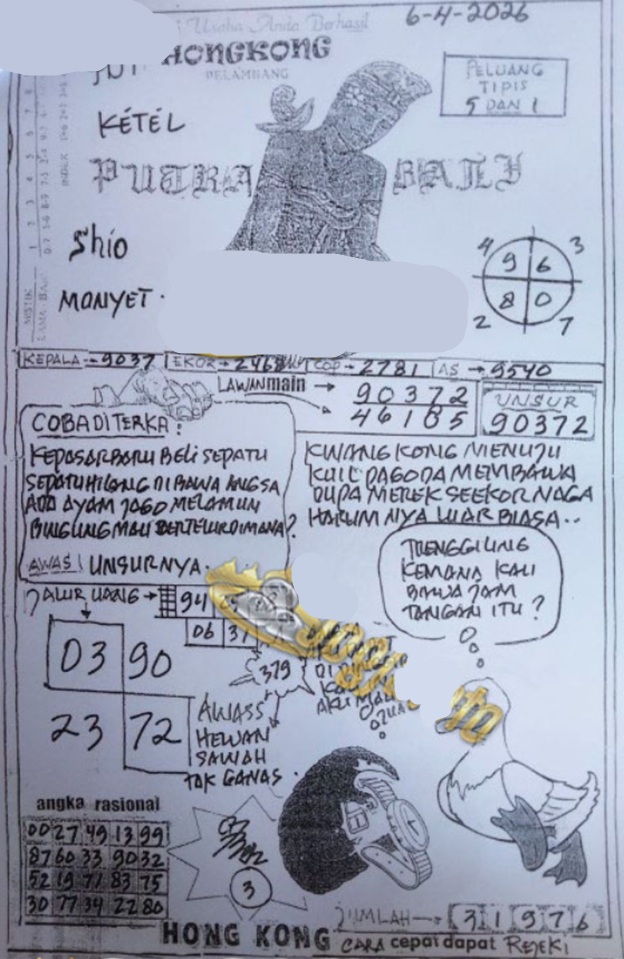 Usaha Anda Berhasil
6-4-2026
HONGKONG
PELAMBANG
PELUANG
TIPIS
5 DAN 1
KETEL
PUTRA BALI
Shio
MONYET.
4 3
9 6
8 0
2 7
KEPALA → 9037 EKOR → 2468 COP → 2781 AS → 9540
LAWAN main → 90372
46185
UNSUR
90372
COBA DITERKA:
KEPASAR BARU BELI SEPATU
SEPATU HILANG DI BAWA ANGSA
ADA AYAM JAGO MELAMUN
BINGUNG MAU BERTELUR DIMANA?
AWAS! UNSURNYA.
KWANG KONG MENUJU
KUIL PAGODA MEMBAWA
DUPA MEREK SEEKOR NAGA
HARUMNYA LUAR BIASA..
TRENGGILING
KEMANA KAU
BAWA JAM
TANGAN ITU?
JALUR UANG → 94
06 37
03 90
23 72
379
AWASS
HEWAN
SAWAH
TAK GANAS.
AKU MAU
angka rasional
00 27 49 13 99
87 60 33 90 32
52 19 71 83 75
30 77 34 22 80
3
JUMLAH → 3 1 9 7 6
HONG KONG CARA cepat dapat REJEKI